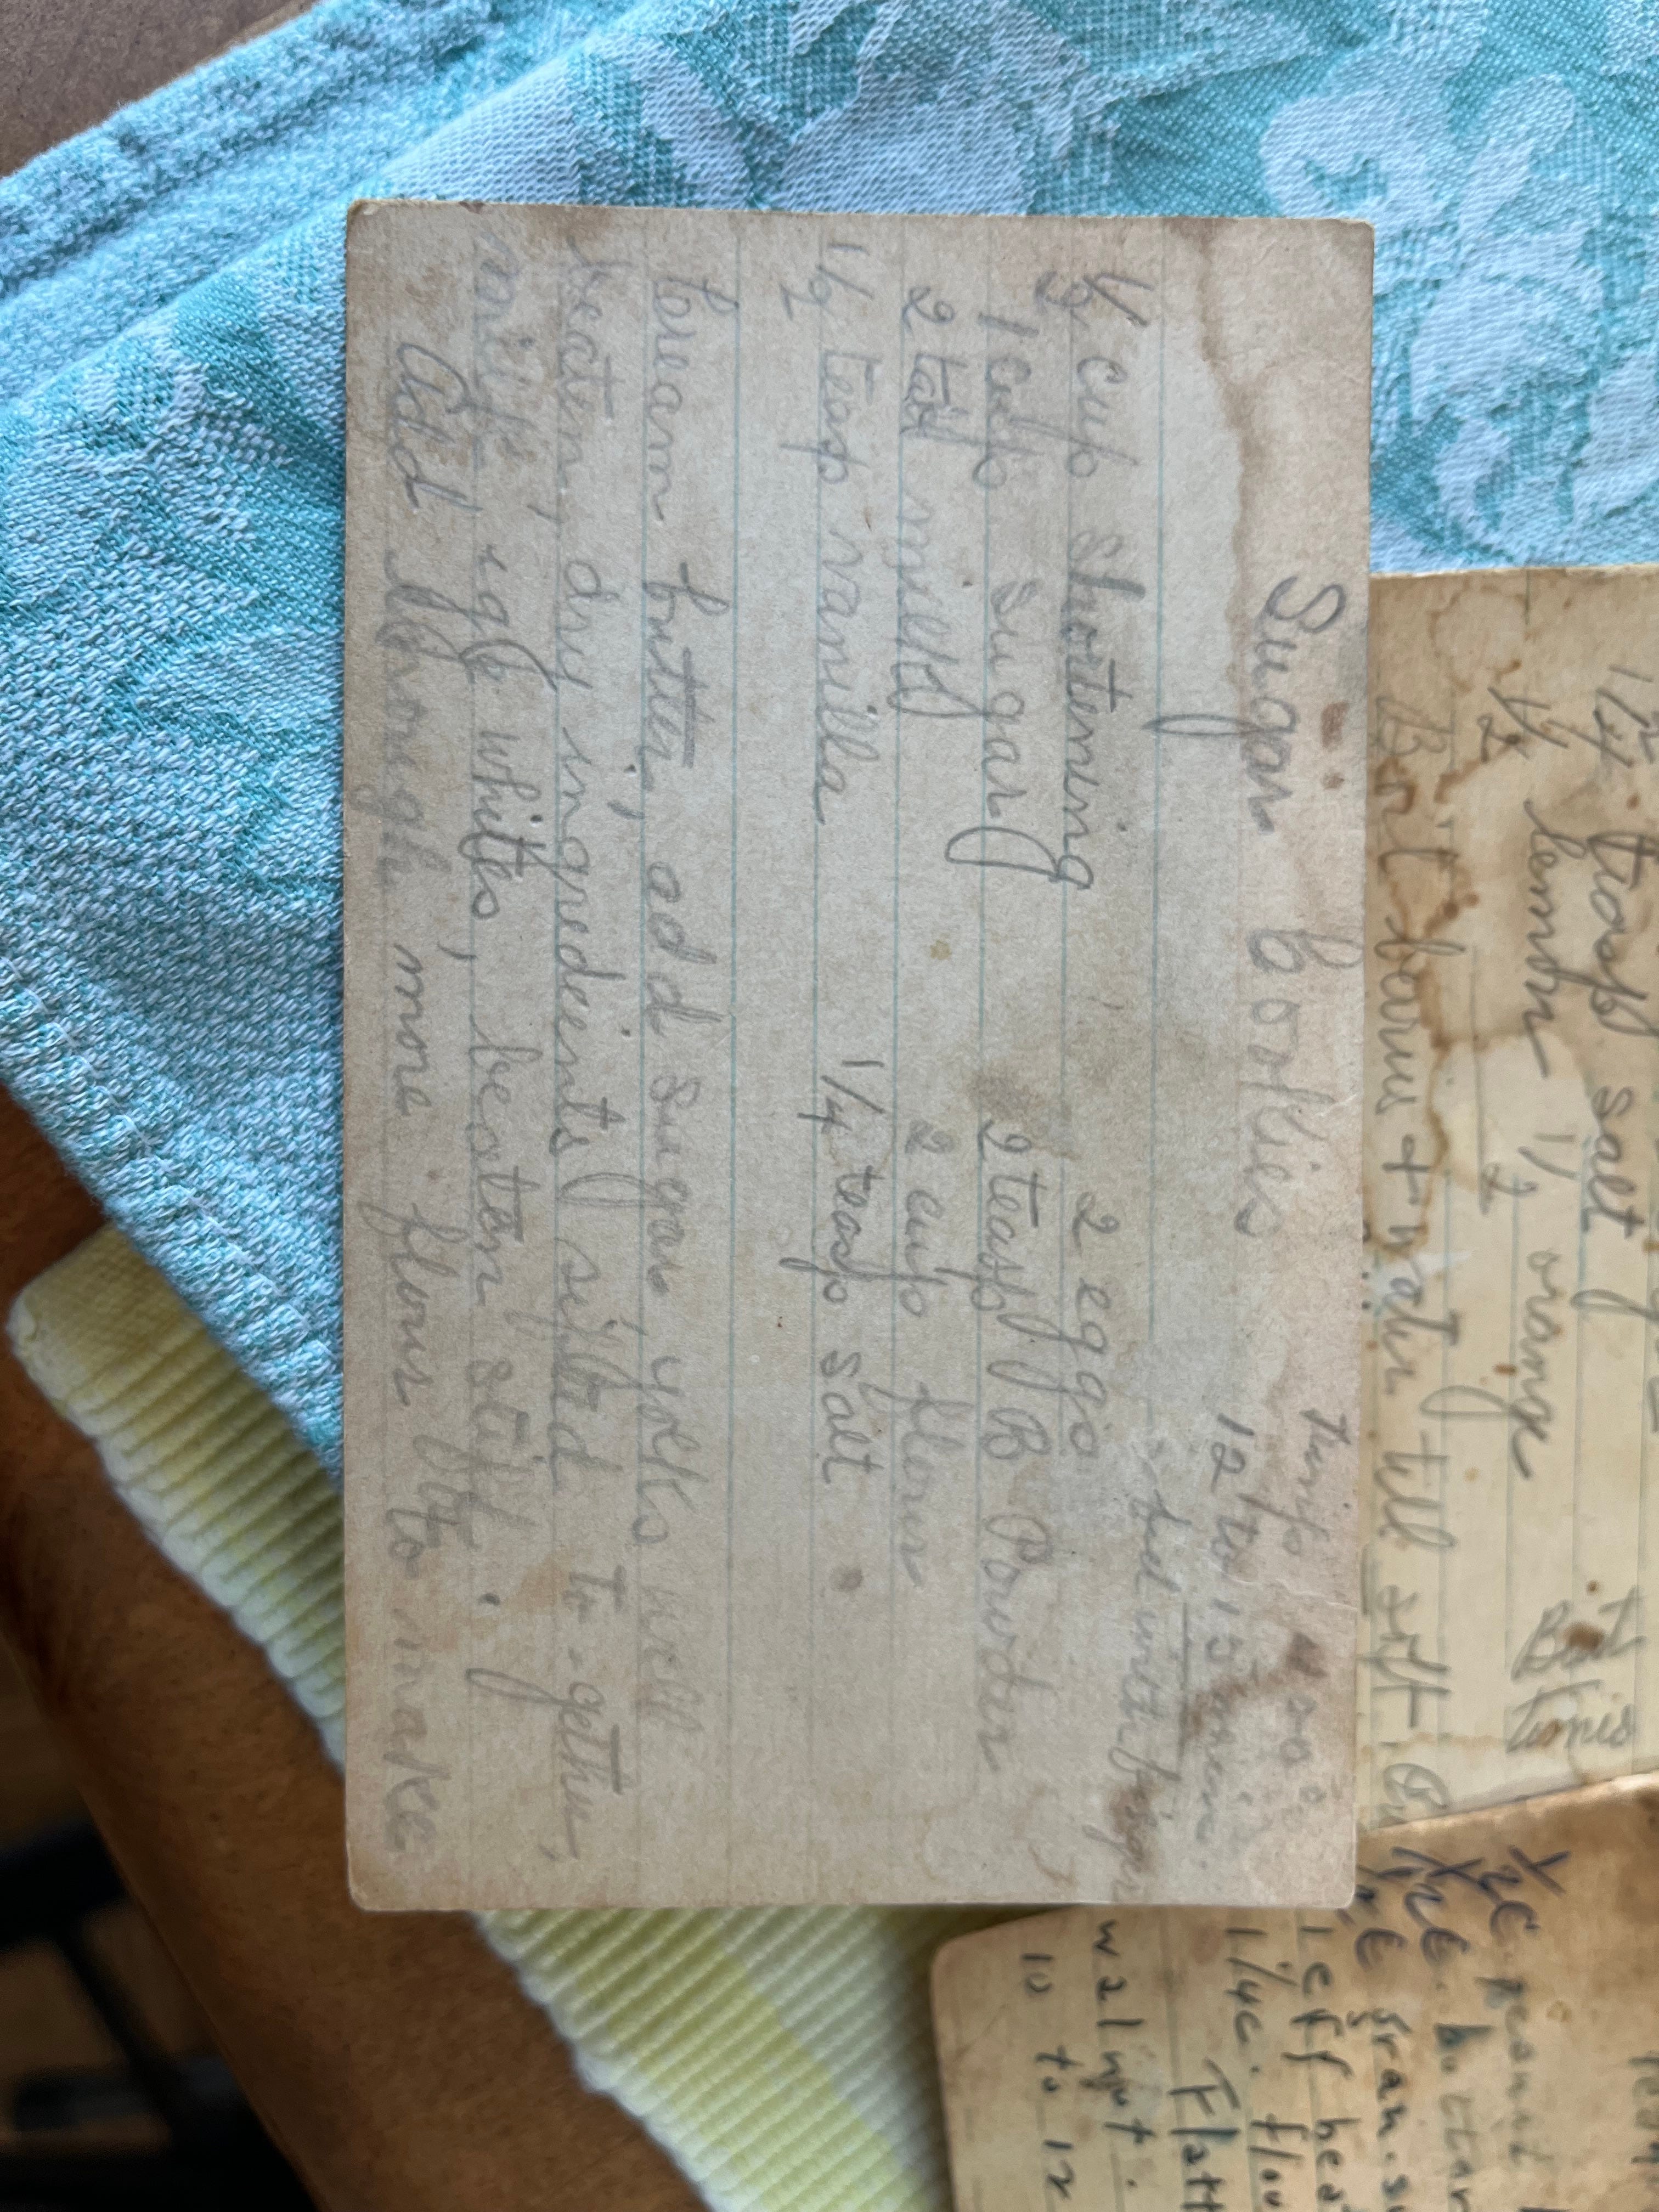 Sugar Cookies
temp 400°
12 to 15 min
1/2 cup shortening 2 eggs
1 cup sugar 2 teasp B Powder
2 tab milk 2 cup flour
1/2 teasp vanilla 1/4 teasp salt
Cream butter, add sugar yolks well
beaten, dry ingredients sifted to-gether,
milk, egg whites, beaten stiff.
Add enough more flour to make
teasp salt
1/2 lemon 1/2 orange
Boil farus + water till soft.
1/2 c peanut
butter
gran. s
1 eff bea
1/4 c. flou
Flatt
walnut.
10 to 12